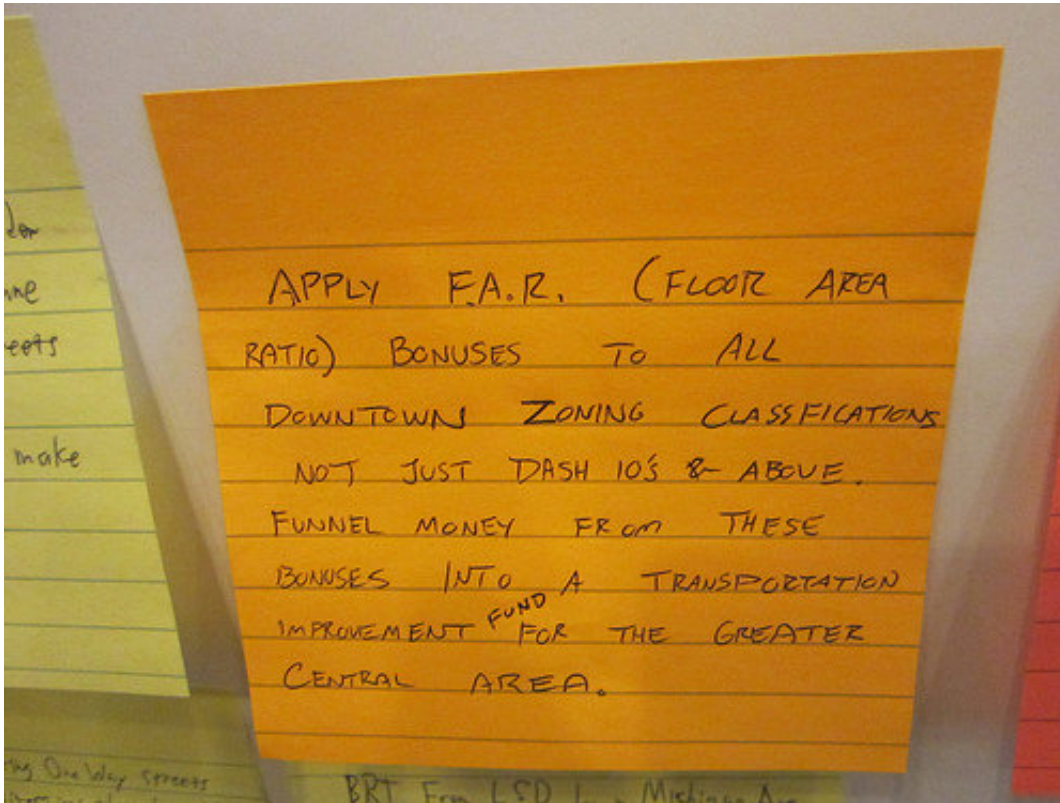 APPLY F.A.R. (FLOOR AREA
RATIO) BONUSES TO ALL
DOWNTOWN ZONING CLASSFICATIONS
NOT JUST DASH 10'S & ABOVE.
FUNNEL MONEY FROM THESE
BONUSES INTO A TRANSPORTATION
IMPROVEMENT FUND FOR THE GREATER
CENTRAL AREA.
eets
make
One Way streets
BRT From LSD